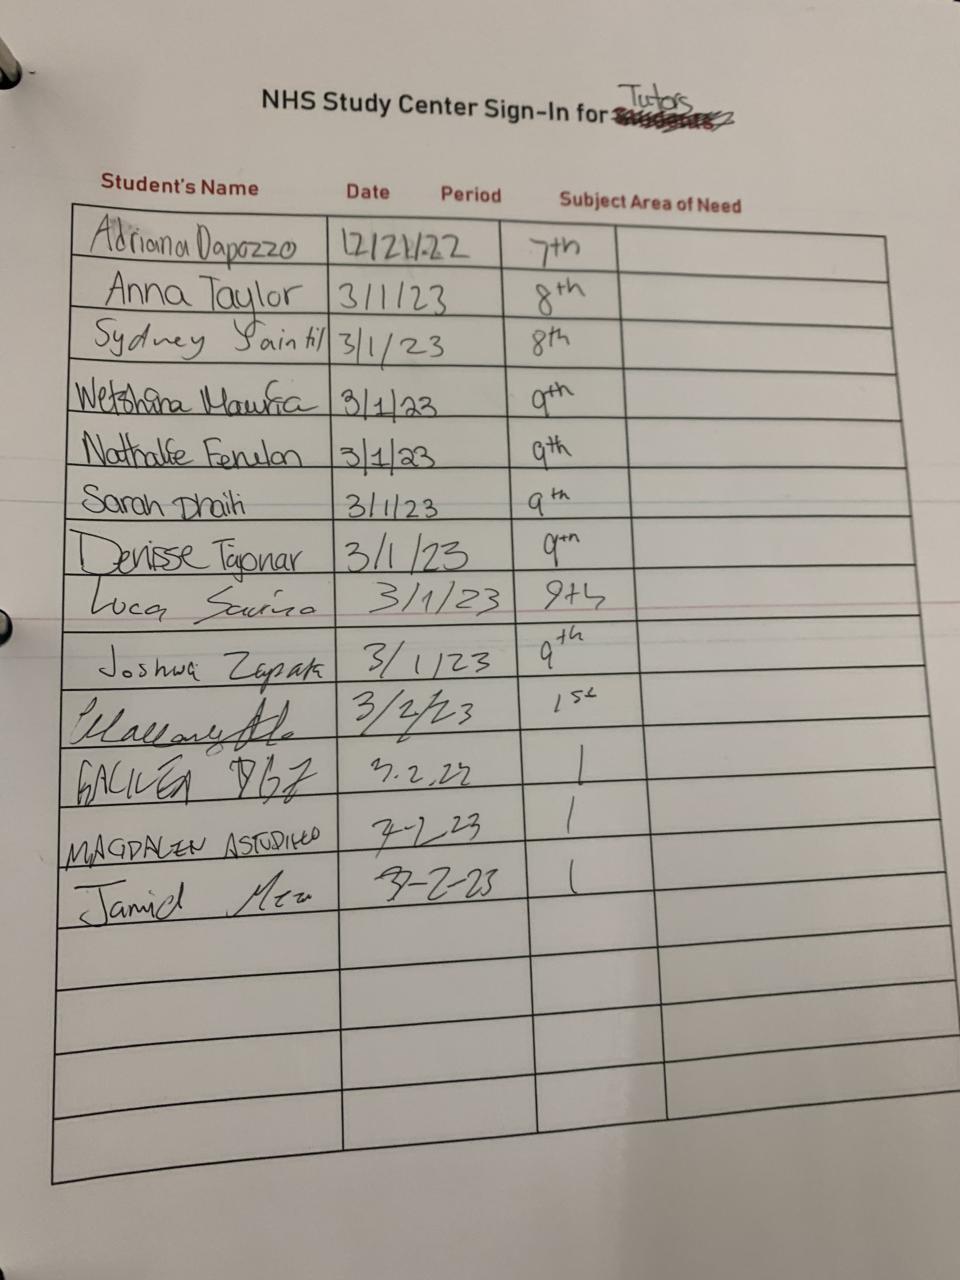 NHS Study Center Sign-In for Tutors
Student's Name Date Period Subject Area of Need
Adriana Dapozzo 12/21/22 7th
Anna Taylor 3/1/23 8th
Sydney Saintil 3/1/23 8th
3/1/23 9th
Nathalie Fenelon 3/1/23 9th
Sarah Dhaiti 3/1/23 9th
Denisse 3/1/23 9th
Luca Savino 3/1/23 9th
Joshua Zapata 3/1/23 9th
3/2/23 1st
1
MAGDALEN ASTUDILLO 23 1
Jamid 3-2-23 1